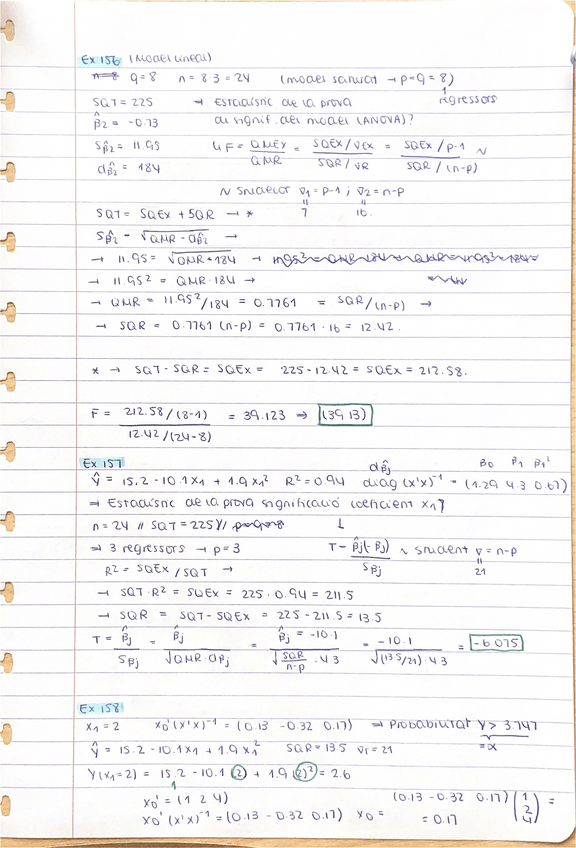 Ex 156 (Model lineal)
q=8 n=8·3=24 (model saturat → p=q=8)
SQT = 225 → Estadístic de la prova regressors
β̂₂ = -0.73 de signif. del model (ANOVA)?
S β̂₂ = 11.95 F = QMEx/QMR = SQEx/νEx / SQR/νR = SQEx/p-1 / SQR/(n-p) ~
d β̂₂ = 184
~ Snedecor ν₁=p-1 ; ν₂=n-p
7 16.
SQT = SQEx + SQR → *
S β̂₂ = √QMR·d β̂₂ →
→ 11.95 = √QMR·184 →
→ 11.95² = QMR·184 →
→ QMR = 11.95²/184 = 0.7761 = SQR/(n-p) →
→ SQR = 0.7761 (n-p) = 0.7761·16 = 12.42.
* → SQT - SQR = SQEx = 225-12.42 = SQEx = 212.58.
F = 212.58/(8-1) / 12.42/(24-8) = 39.123 ⇒ (39.13)
Ex 157 d β̂j β0 β1 β1²
Ŷ = 15.2 - 10.1x₁ + 1.9x₁² R²=0.94 diag (x'x)⁻¹ = (1.29 4.3 0.67)
⇒ Estadístic de la prova significació coeficient x₁?
n=24 // SQT=225 // ↓
⇒ 3 regressors → p=3 T = β̂j(-βj) / S β̂j ~ Student ν=n-p
R² = SQEx/SQT → 21
→ SQT·R² = SQEx = 225·0.94 = 211.5
→ SQR = SQT-SQEx = 225-211.5 = 13.5
T = β̂j / S β̂j = β̂j / √QMR·d β̂j = β̂j = -10.1 / √SQR/n-p · 4.3 = -10.1 / √(13.5/21)·4.3 = -6.075
Ex 158
x₁=2 x₀'(x'x)⁻¹ = (0.13 -0.32 0.17) ⇒ Probabilitat Y > 3.747
Ŷ = 15.2 - 10.1x₁ + 1.9x₁² SQR=13.5 νr=21 =α
Y(x₁=2) = 15.2 - 10.1 (2) + 1.9 (2)² = 2.6
1
x₀' = (1 2 4) (0.13 -0.32 0.17) (1 2 4) =
x₀'(x'x)⁻¹ = (0.13 -0.32 0.17) x₀ = = 0.17